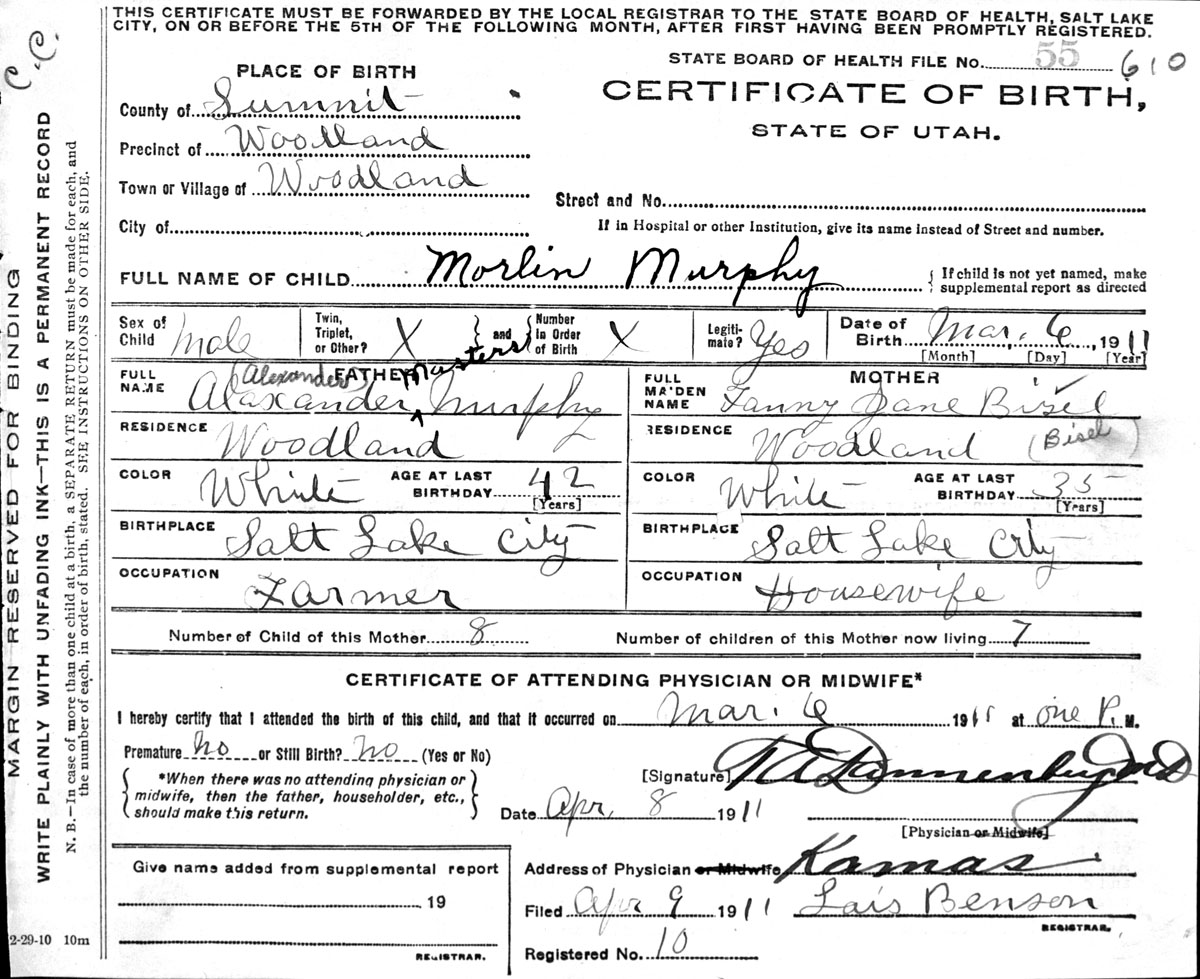 THIS CERTIFICATE MUST BE FORWARDED BY THE LOCAL REGISTRAR TO THE STATE BOARD OF HEALTH, SALT LAKE
CITY, ON OR BEFORE THE 5TH OF THE FOLLOWING MONTH, AFTER FIRST HAVING BEEN PROMPTLY REGISTERED.
C.C.
MARGIN RESERVED FOR BINDING
WRITE PLAINLY WITH UNFADING INK—THIS IS A PERMANENT RECORD
N. B.—In case of more than one child at a birth, a SEPARATE RETURN must be made for each, and
the number of each, in order of birth, stated. SEE INSTRUCTIONS ON OTHER SIDE.
STATE BOARD OF HEALTH FILE No. 55 610
CERTIFICATE OF BIRTH,
STATE OF UTAH.
PLACE OF BIRTH
County of Summit
Precinct of Woodland
Town or Village of Woodland
Street and No.
City of
If in Hospital or other Institution, give its name instead of Street and number.
FULL NAME OF CHILD Morlin Murphy { If child is not yet named, make
supplemental report as directed
Sex of Child Male
Twin, Triplet, or Other? X } and { Number in Order of Birth X
Legitimate? Yes
Date of Birth Mar. 6 1911
[Month] [Day] [Year]
FATHER
FULL NAME (Alexander) Alaxander Masters Murphy
RESIDENCE Woodland
COLOR White AGE AT LAST BIRTHDAY 42 [Years]
BIRTHPLACE Salt Lake City
OCCUPATION Farmer
MOTHER
FULL MAIDEN NAME Fanny Jane Bisel
RESIDENCE Woodland (Bisel)
COLOR White AGE AT LAST BIRTHDAY 35 [Years]
BIRTHPLACE Salt Lake City
OCCUPATION Housewife
Number of Child of this Mother 8 Number of children of this Mother now living 7
CERTIFICATE OF ATTENDING PHYSICIAN OR MIDWIFE*
I hereby certify that I attended the birth of this child, and that it occurred on Mar. 6 1911 at one P. M.
Premature No or Still Birth? No (Yes or No)
{ *When there was no attending physician or
midwife, then the father, householder, etc.,
should make this return. }
[Signature] Dannenburg MD
Date Apr. 8 1911
[Physician or Midwife]
Address of Physician or Midwife Kamas
Filed Apr 9 1911 Lais Benson
REGISTRAR.
Registered No. 10
Give name added from supplemental report
19
REGISTRAR.
2-29-10 10m